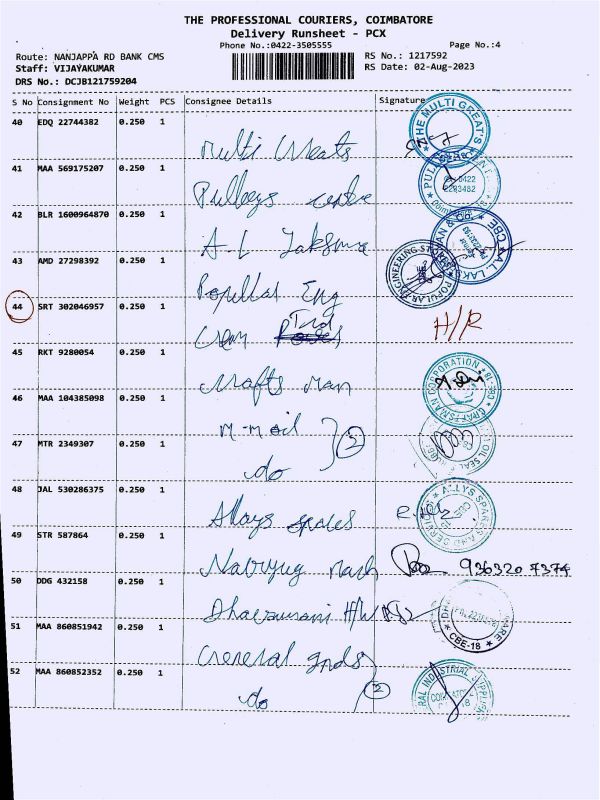 THE PROFESSIONAL COURIERS, COIMBATORE
Delivery Runsheet - PCX
Phone No.:0422-3505555
Page No.:4
Route: NANJAPPA RD BANK CMS
Staff: VIJAYAKUMAR
DRS No.: DCJB121759204
RS No.: 1217592
RS Date: 02-Aug-2023
S No Consignment No Weight PCS Consignee Details Signature
40 EDQ 22744382 0.250 1
Multi Meats
THE MULTI GREAT'S
41 MAA 569175207 0.250 1
Pulleys centre
42 BLR 1600964870 0.250 1
A.L Laksma
43 AMD 27298392 0.250 1
Popullar Eng
POPULAR ENGINEERING
44 SRT 302046957 0.250 1
Ind
H/R
45 RKT 9280054 0.250 1
Crafts man
CRAFTSMAN CORPORATION
46 MAA 104385098 0.250 1
M.M oil
47 MTR 2349307 0.250 1
do
2
OIL SEAL
48 JAL 530286375 0.250 1
Alays spares
ALLYS SPARES AND SERVICE
49 STR 587864 0.250 1
Navyug Mach
936320 7374
50 DDG 432158 0.250 1
H/W
CBE-18
51 MAA 860851942 0.250 1
General Inds
52 MAA 860852352 0.250 1
do
2
RAL INDUSTRIAL SUPPLI